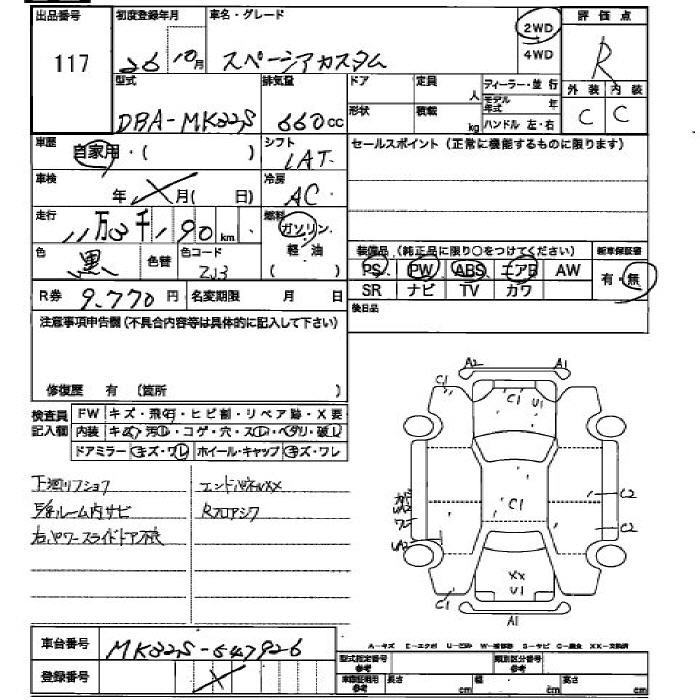 出品番号 初度登録年月 車名・グレード 2WD 評価点
117 26 10月 スペーシアカスタム 4WD R
型式 排気量 ドア 定員 人 ディーラー・並行 外装 内装
形状 積載 kg モデル年式 年 C C
DBA-MK32S 660cc ハンドル 左・右
車歴 自家用・( ) シフト LAT セールスポイント(正常に機能するものに限ります)
車検 年 月( 日) 冷房 AC
走行 11万3千190km 燃料 ガソリン・軽油 ( )
色 黒 色替 色コード ZJ3
装備品(純正品に限り○をつけてください) 新車保証書
PS PW ABS エアB AW 有・無
SR ナビ TV カワ
R券 9,770円 名変期限 月 日
後日品
注意事項申告欄(不具合内容等は具体的に記入して下さい)
修復歴 有 (箇所 )
検査員記入欄 FW キズ・飛石・ヒビ割・リペア跡・X要
内装 キズ・汚レ・コゲ・穴・スレ・ヘタリ・破レ
ドアミラー キズ・ワレ ホイール・キャップ キズ・ワレ
A2 A1
C1 C1 U1
下廻リフショク エンドパネルXX
E/gルーム内サビ Rフロアシワ
右パワースライドドア不良
C1 C2
UA2 C2
XX
U1
C1 A1
A-キズ E-エクボ U-凹み W-補修跡 S-サビ C-腐食 XX-交換済
車台番号 MK32S-547926
登録番号
型式指定番号 参考 類別区分番号 参考
車検証使用 参考 長さ cm 幅 cm 高さ cm